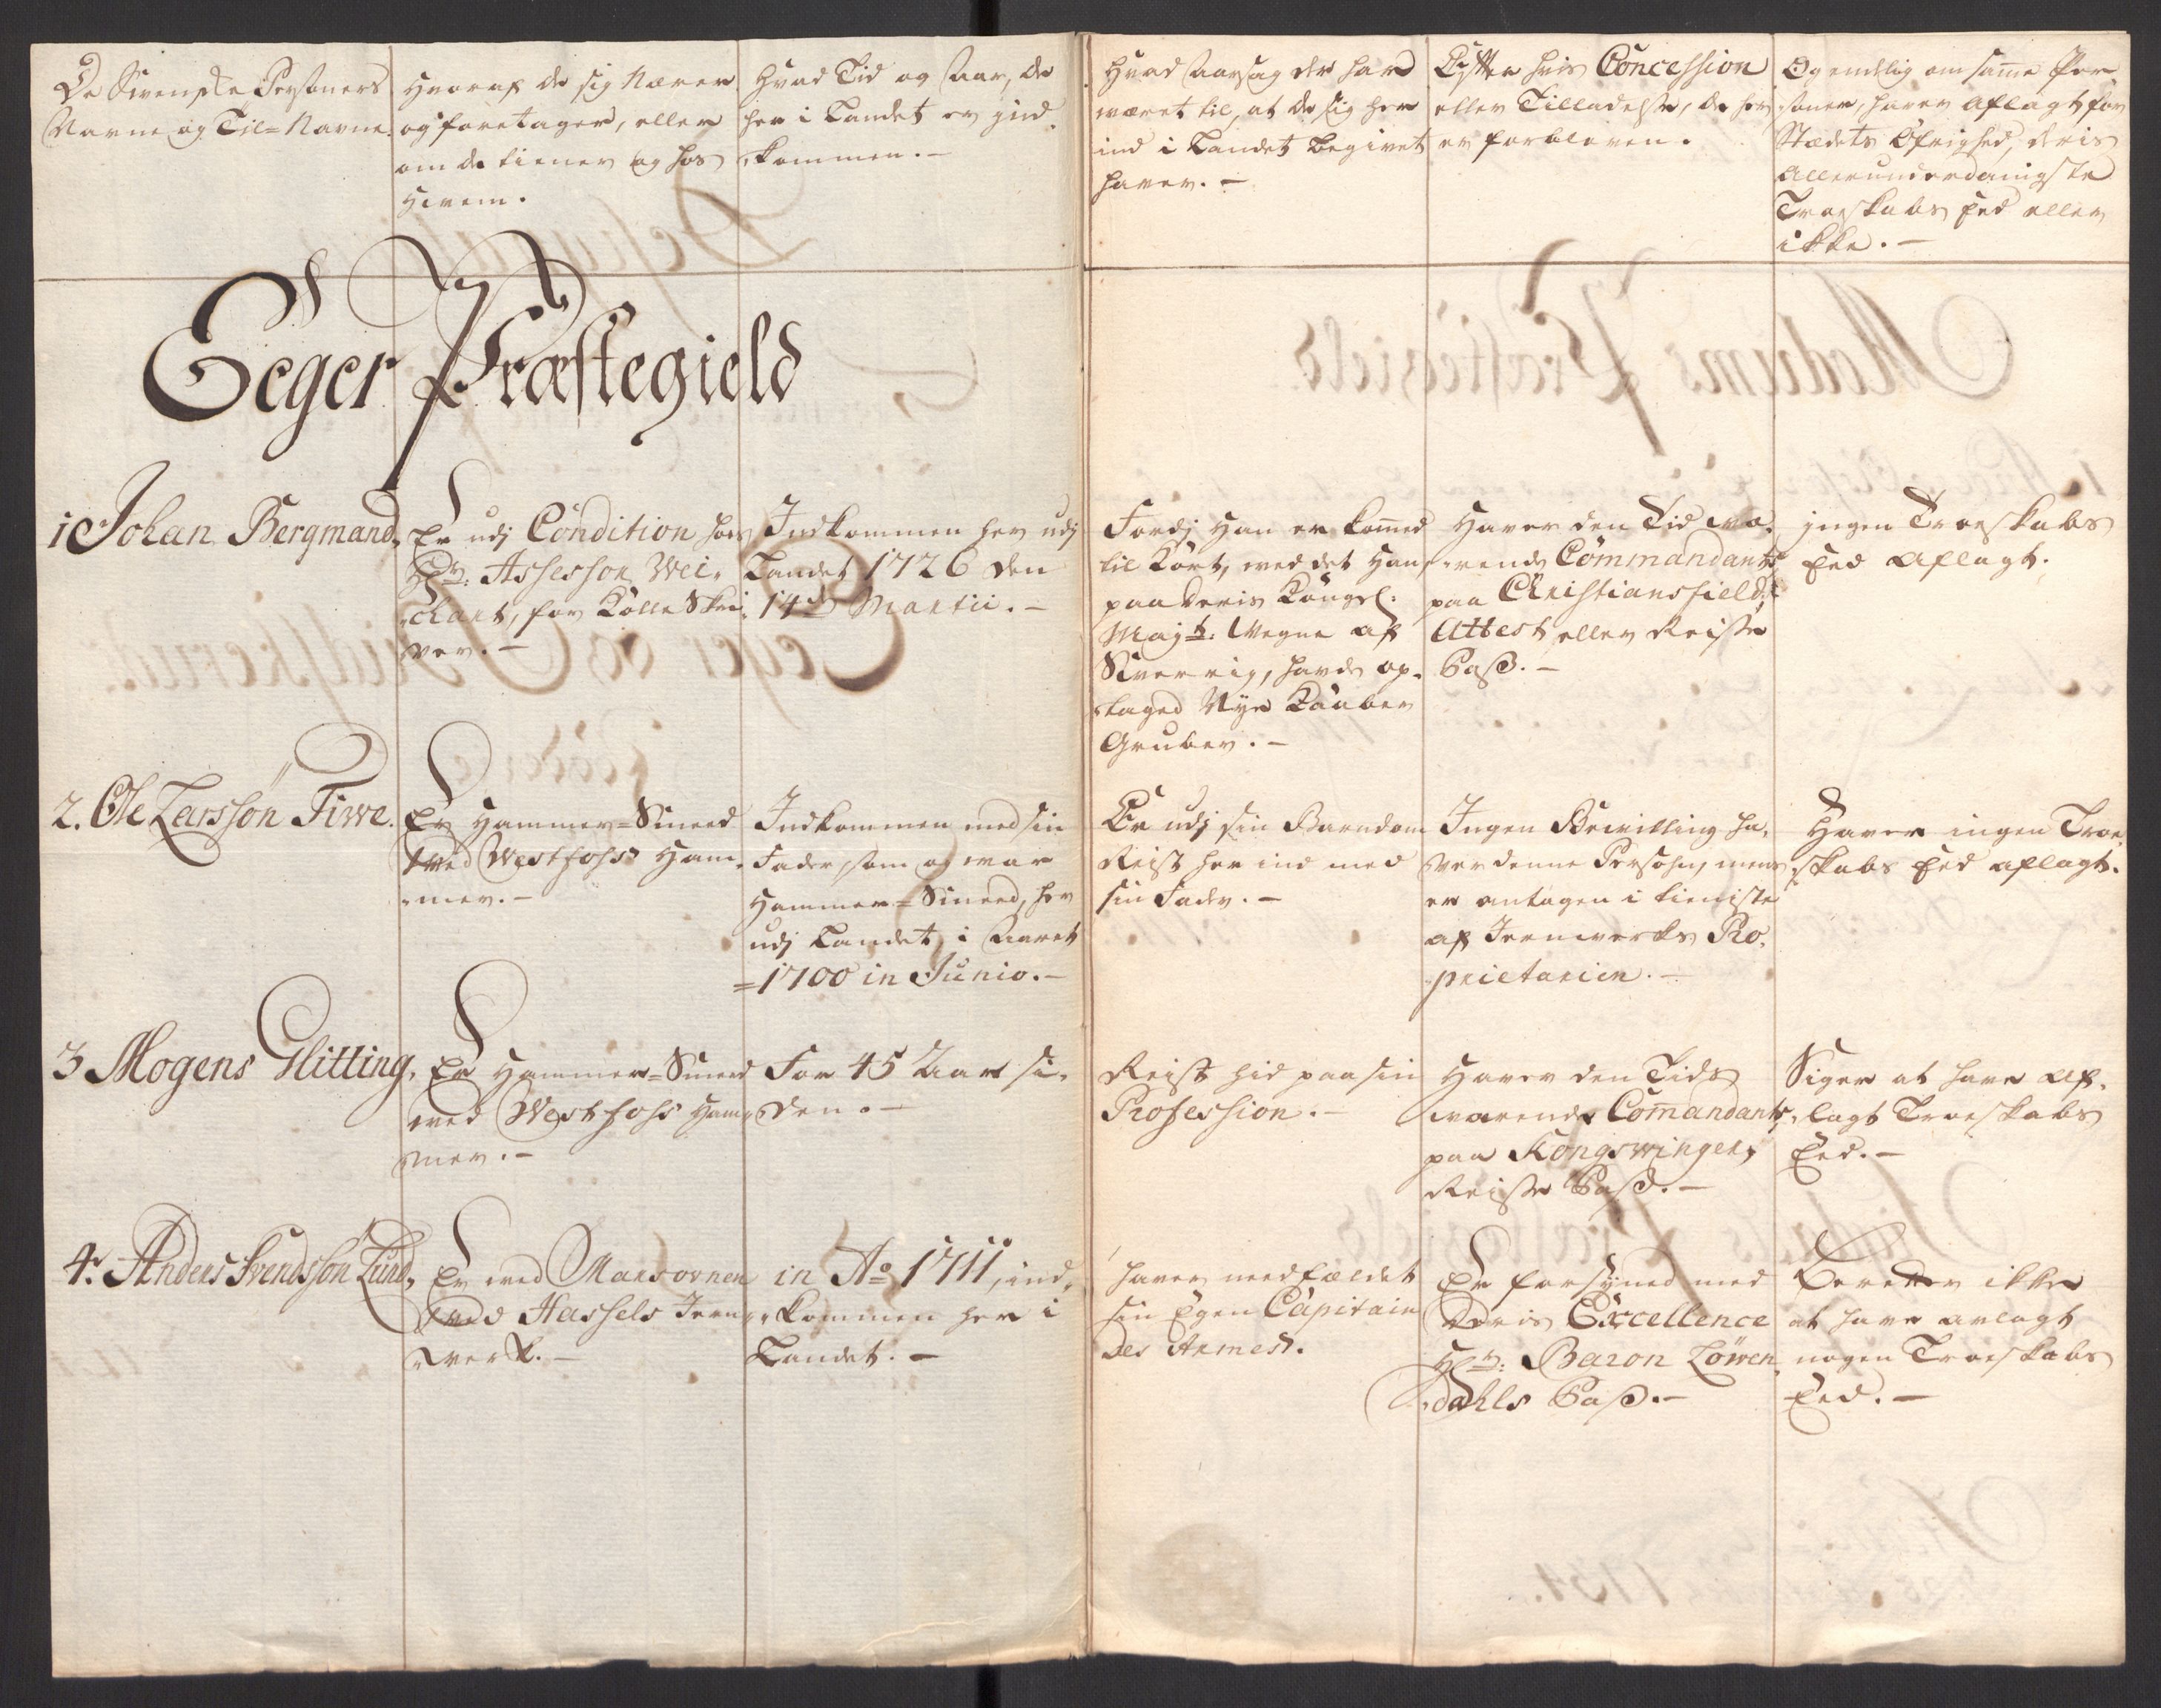 De Svenske Persohners
Navne og Til=Navne.
Hvoraf de sig Nærer
og foretager, eller
om de tiener og hos
Hvem.
Hvad Tid og Aar, de
her i Landet er ind
kommen.-
Hvad Aarsag der har
wæret til, at de sig her
ind i Landet begivet
haver.-
Efter hvis Concession
eller Tilladelse, de her
er forbleven.
Og endelig om samme Per-
soner, haver aflagt for
Stædets Øfrighed, deris
allerunderdanigste
Troeskabs Eed eller
ikke.-
Eeger Præstegield
1 Johan Bergmand,
Er udj Condition hos
Hr: Assessor Wei-
chart, for Kolle Skri-
ver.-
Indkommen her udj
Landet 1726 den
14de Martii.-
Fordj Han er kommed
til Kort, med det Han
paa Deris Kongel:
Mayts: Vegne af
Sverrig, havde op-
taged Nye Kaaber
Gruber.-
Haver den Tid wæ-
rende Commandants
paa Christiansfields
Attest eller Reise
Pass.-
jngen Troeskabs
Eed aflagt.
2. Ole Larssøn Tiwe.
Er Hammer=Smeed
wed Westfoss Ham-
mer.-
Indkommen med sin
Fader, som og war
Hammer=Smeed, her
udj Landet i Aaret
=1700 in Junio.-
Er udj sin Barndom
Reist her ind med
sin Fader.-
Ingen Bevilling ha-
ver denne Persohn, mens
er antagen i tieniste
af Jernwerks Pro-
prietarien.-
Haver ingen Troe-
skabs Eed aflagt.
3 Mogens Hitting,
Er Hammer=Smeed
wed Westfoss Ham-
mer.-
For 45 Aar si-
den.-
Reist hid paa sin
Profession.-
Haver den Tids
warende Comandants
paa Kongswinger,
Reise Pass.-
Siger at have af-
lagt Troeskabs
Eed.-
4. Anders Svendssøn Lund,
Er wed Masovnen
wed Hassels Jern-
werk.-
in Ao 1711, ind-
kommen her i
Landet.-
haver needfældet
sin Egen Capitain
Des Armes.
Er forsÿned med
Deris Excellence
Hr: Baron Löwen
dahls Pass.-
Beretter ikke
at have avlagt
nogen Troeskabs
Eed.-